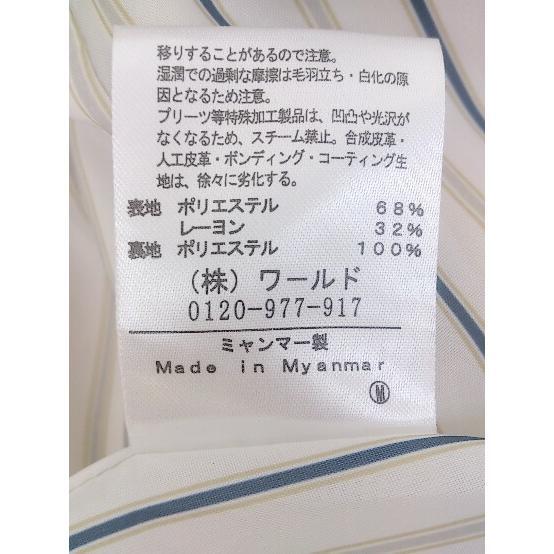 移りすることがあるので注意。
湿潤での過剰な摩擦は毛羽立ち・白化の原
因となるため注意。
プリーツ等特殊加工製品は、凹凸や光沢が
なくなるため、スチーム禁止。合成皮革・
人工皮革・ボンディング・コーティング生
地は、徐々に劣化する。
表地 ポリエステル 68%
レーヨン 32%
裏地 ポリエステル 100%
(株) ワールド
0120-977-917
ミャンマー製
Made in Myanmar
M